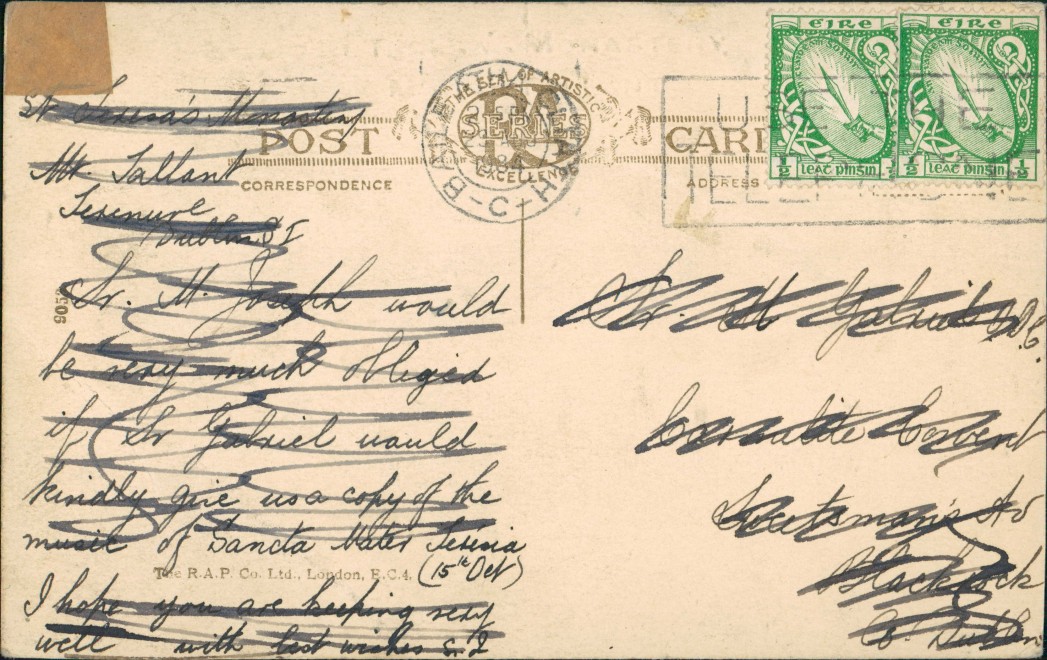 ÉIRE ÉIRE
½ leaṫ pinsin ½ ½ leaṫ pinsin ½
BAILE ÁTHA CLIATH
THE SEAL OF ARTISTIC EXCELLENCE
SERIES
POST CARD
CORRESPONDENCE
ADDRESS
St Teresa's Monastery
Mt. Tallant
Terenure
Dublin
Sr. M. Joseph would
be very much obliged
if Sr Gabriel would
kindly give us a copy of the
music of Sancta Mater Teresia
(15th Oct)
I hope you are keeping very
well with best wishes
9059
The R.A.P. Co. Ltd., London, E.C.4.
Sr. M Gabriel
Carmelite Convent
Sweetman's Av
Blackrock
Co. Dublin